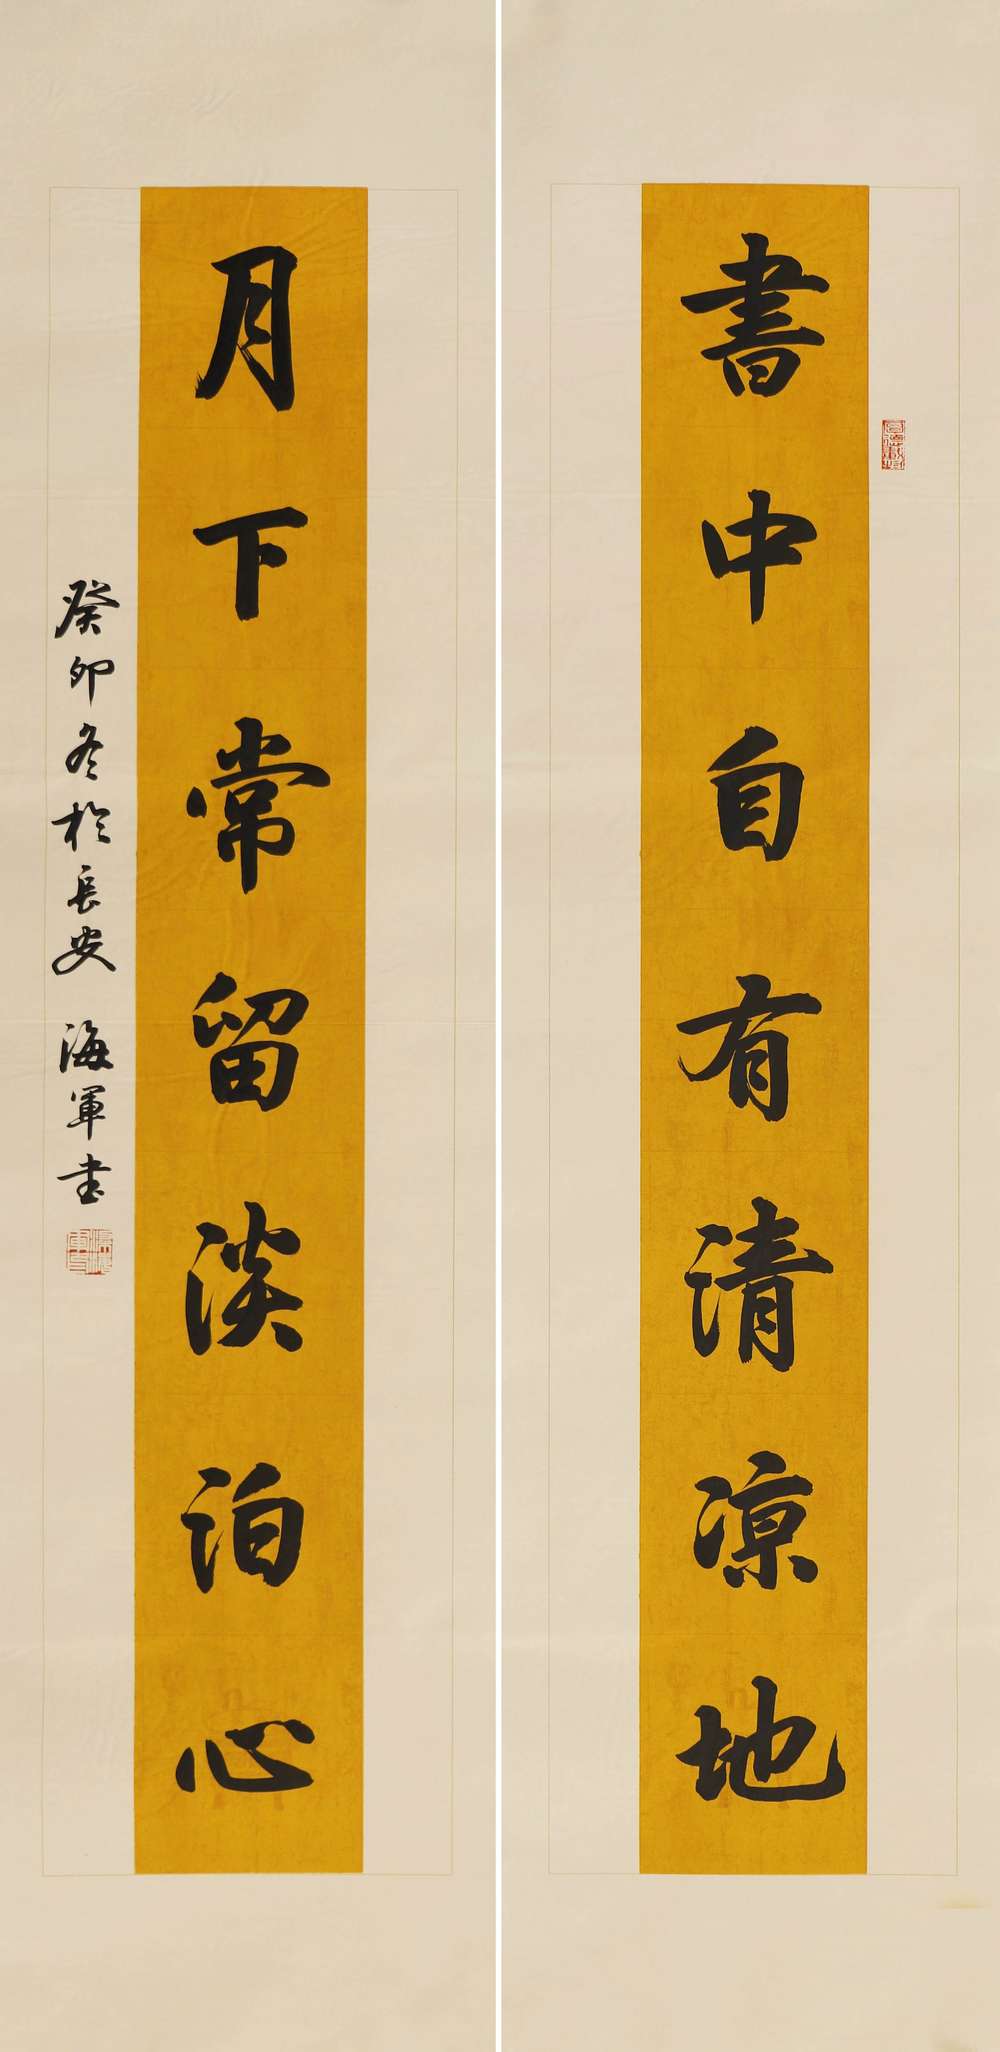 書中自有清凉地
月下常留淡泊心
癸卯冬於長安 海軍书